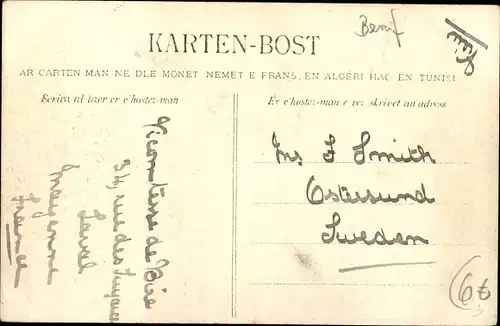 Benif
KARTEN-BOST
AR CARTEN MAN NE DLE MONET NEMET E FRANS, EN ALGÉRI HAG EN TUNISI
Scrivet al lizer er c'hostez-man
Er c'hostez-man e vez skrivet an adress
Vicomtesse de
34, rue des
Laval
Mayenne
France
Mrs J Smith
Ostersund
Sweden